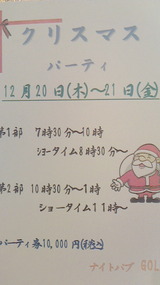 クリスマス
パーティ
12月20日(木)~21日(金)
第1部 7時30分~10時
ショータイム8時30分~
第2部 10時30分~1時
ショータイム11時~
パーティ券10,000円(税込)
ナイトパブ GOL